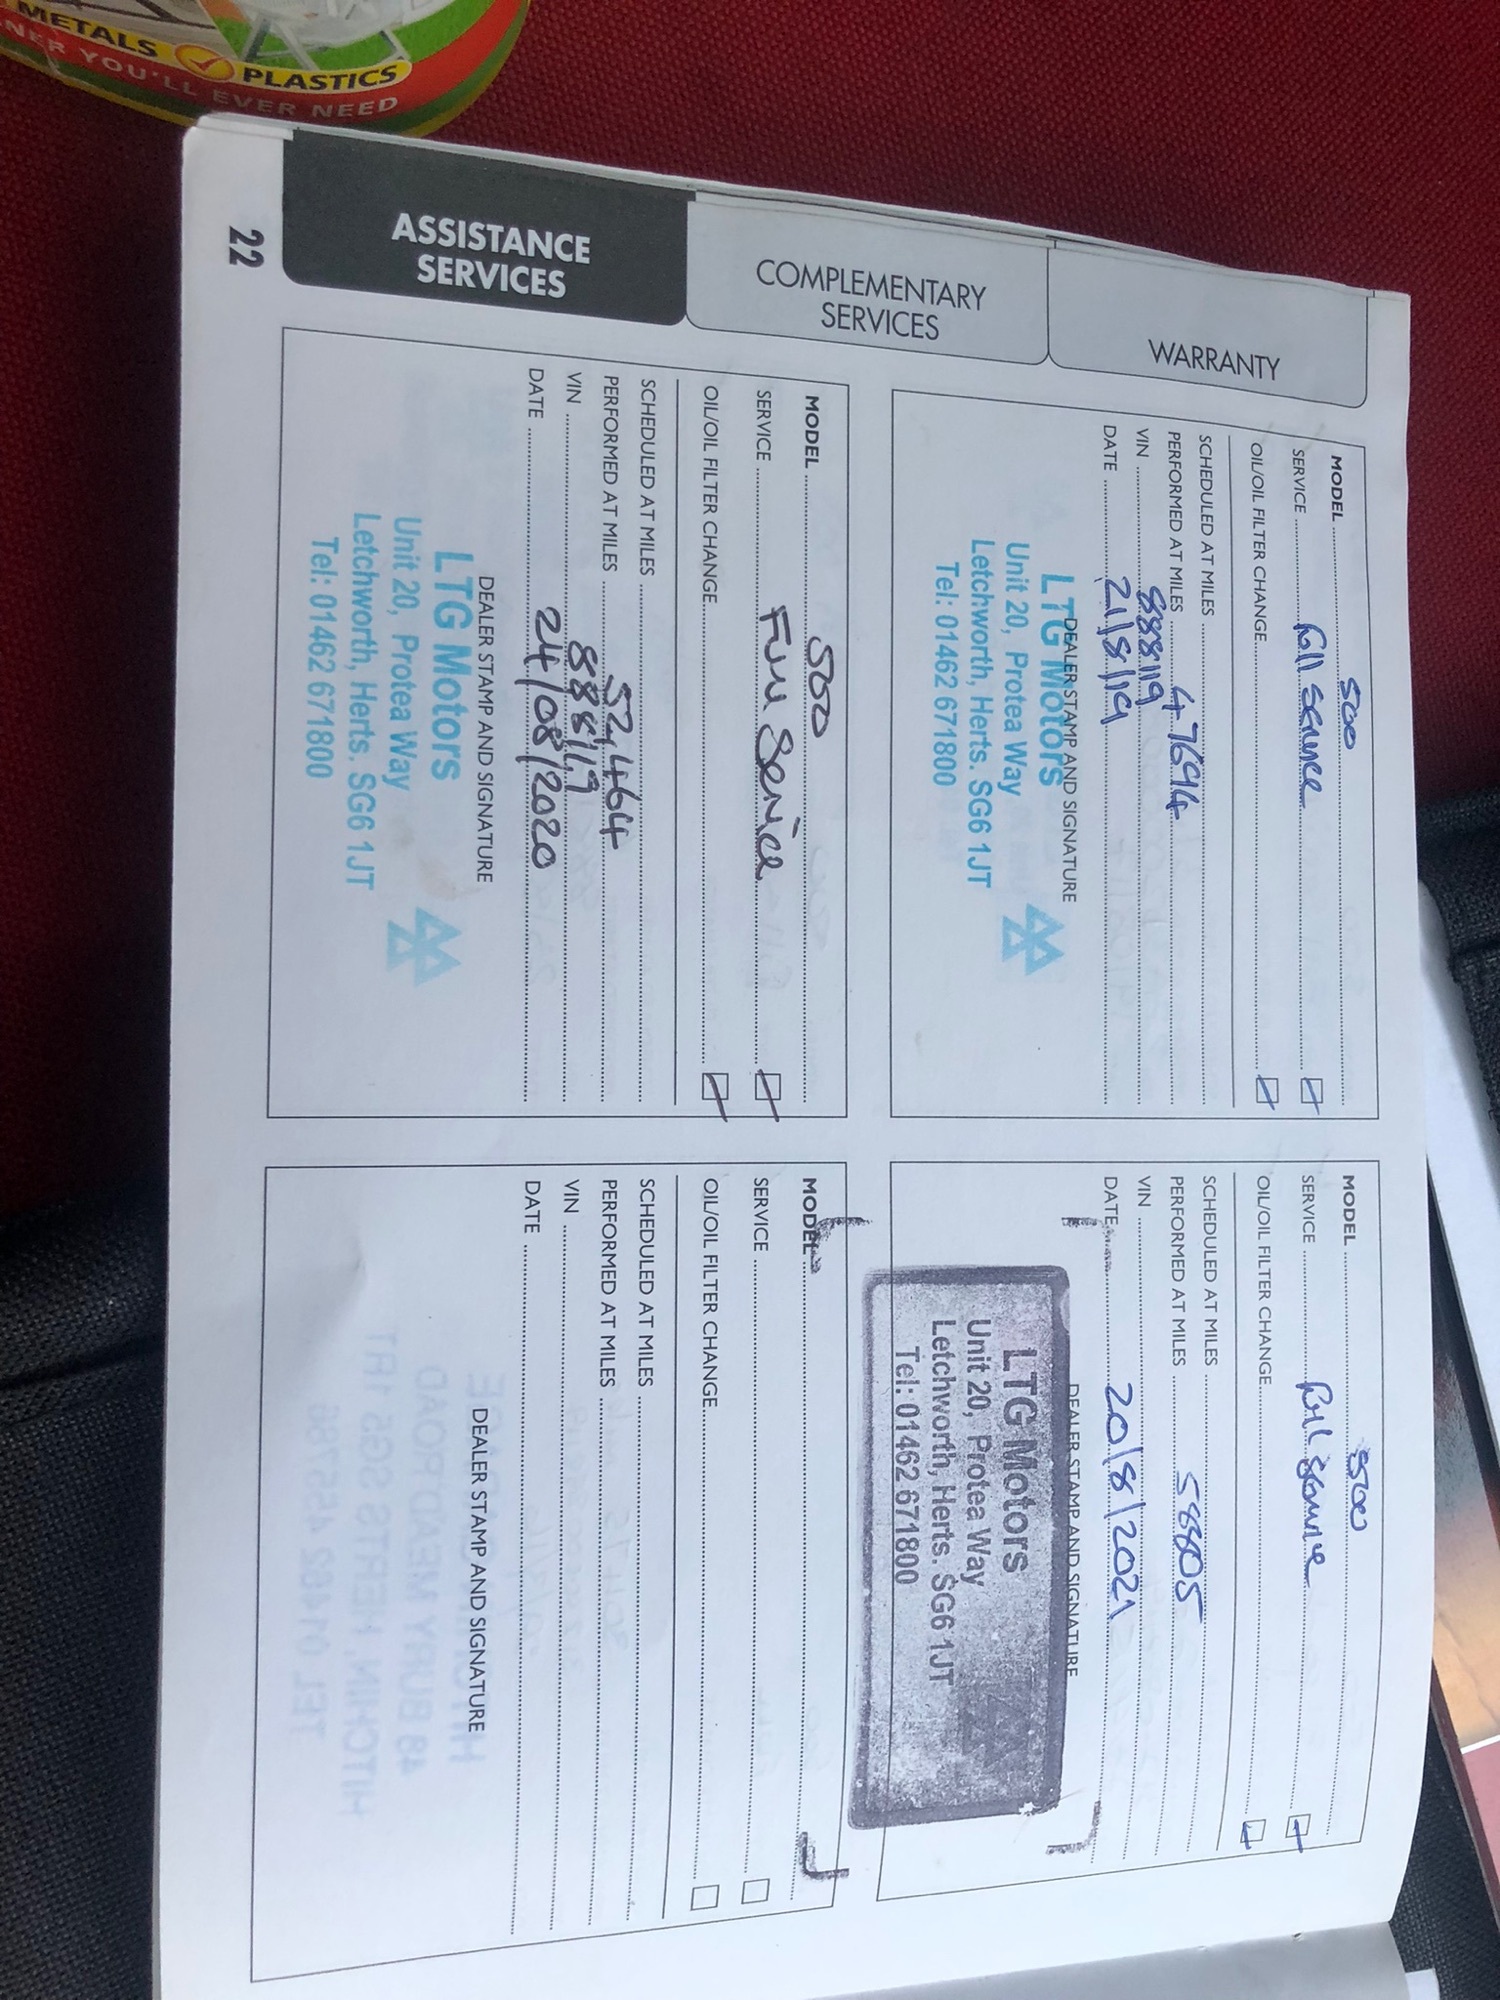 METALS PLASTICS
NER YOU'LL EVER NEED
WARRANTY
COMPLEMENTARY
SERVICES
ASSISTANCE
SERVICES
22
MODEL 500
SERVICE full service
OIL/OIL FILTER CHANGE
SCHEDULED AT MILES
PERFORMED AT MILES 47694
VIN 888119
DATE 21/8/19
DEALER STAMP AND SIGNATURE
LTG Motors
Unit 20, Protea Way
Letchworth, Herts. SG6 1JT
Tel: 01462 671800
MODEL 500
SERVICE full service
OIL/OIL FILTER CHANGE
SCHEDULED AT MILES
PERFORMED AT MILES
VIN
DATE 20/8/2021
DEALER STAMP AND SIGNATURE
LTG Motors
Unit 20, Protea Way
Letchworth, Herts. SG6 1JT
Tel: 01462 671800
MODEL 500
SERVICE Full Service
OIL/OIL FILTER CHANGE
SCHEDULED AT MILES
PERFORMED AT MILES 52,464
VIN 888119
DATE 24/08/2020
DEALER STAMP AND SIGNATURE
LTG Motors
Unit 20, Protea Way
Letchworth, Herts. SG6 1JT
Tel: 01462 671800
MODEL
SERVICE
OIL/OIL FILTER CHANGE
SCHEDULED AT MILES
PERFORMED AT MILES
VIN
DATE
DEALER STAMP AND SIGNATURE